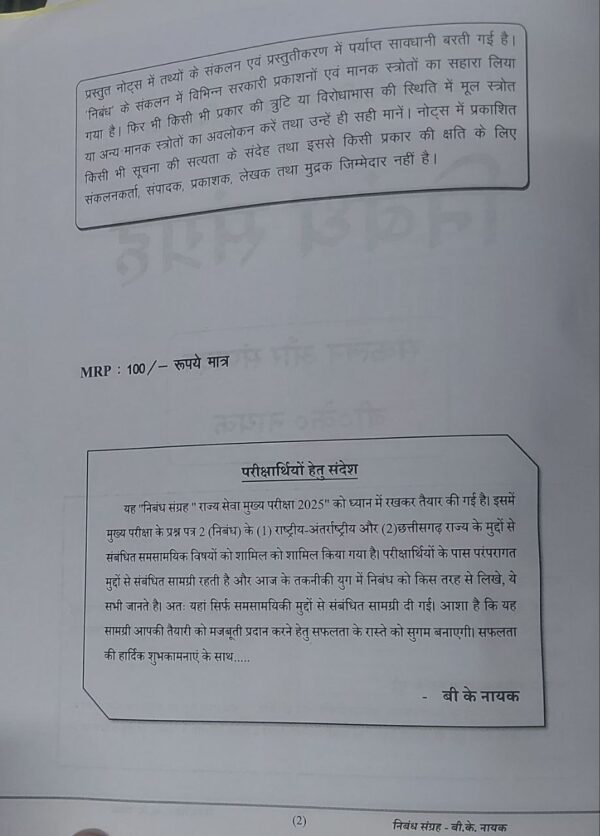 प्रस्तुत नोट्स में तथ्यों के संकलन एवं प्रस्तुतीकरण में पर्याप्त सावधानी बरती गई है।
'निबंध' के संकलन में विभिन्न सरकारी प्रकाशनों एवं मानक स्त्रोतों का सहारा लिया
गया है। फिर भी किसी भी प्रकार की त्रुटि या विरोधाभास की स्थिति में मूल स्त्रोत
या अन्य मानक स्त्रोतों का अवलोकन करें तथा उन्हें ही सही मानें। नोट्स में प्रकाशित
किसी भी सूचना की सत्यता के संदेह तथा इससे किसी प्रकार की क्षति के लिए
संकलनकर्ता, संपादक, प्रकाशक, लेखक तथा मुद्रक जिम्मेदार नहीं है।
MRP : 100/– रूपये मात्र
परीक्षार्थियों हेतु संदेश
यह "निबंध संग्रह" राज्य सेवा मुख्य परीक्षा 2025" को ध्यान में रखकर तैयार की गई है। इसमें
मुख्य परीक्षा के प्रश्न पत्र 2 (निबंध) के (1) राष्ट्रीय-अंतर्राष्ट्रीय और (2)छत्तीसगढ़ राज्य के मुद्दों से
संबंधित समसामयिक विषयों को शामिल को शामिल किया गया है। परीक्षार्थियों के पास परंपरागत
मुद्दों से संबंधित सामग्री रहती है और आज के तकनीकी युग में निबंध को किस तरह से लिखे, ये
सभी जानते है। अतः यहां सिर्फ समसामयिकी मुद्दों से संबंधित सामग्री दी गई। आशा है कि यह
सामग्री आपकी तैयारी को मजबूती प्रदान करने हेतु सफलता के रास्ते को सुगम बनाएगी। सफलता
की हार्दिक शुभकामनाएं के साथ.....
- बी के नायक
(2)
निबंध संग्रह - बी.के. नायक